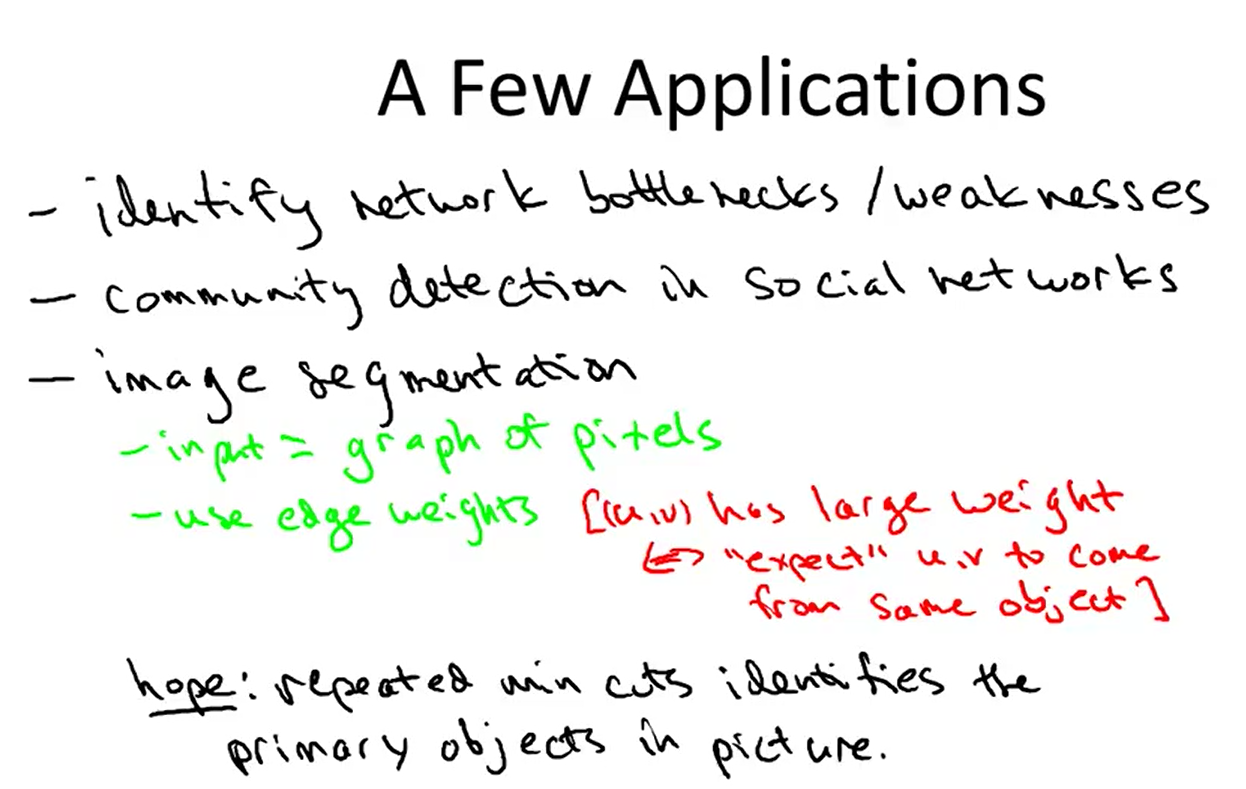 A Few Applications
- identify network bottlenecks / weaknesses
- community detection in social networks
- image segmentation
- input = graph of pixels
- use edge weights [(u,v) has large weight
<=> "expect" u,v to come
from same object]
hope: repeated min cuts identifies the
primary objects in picture.